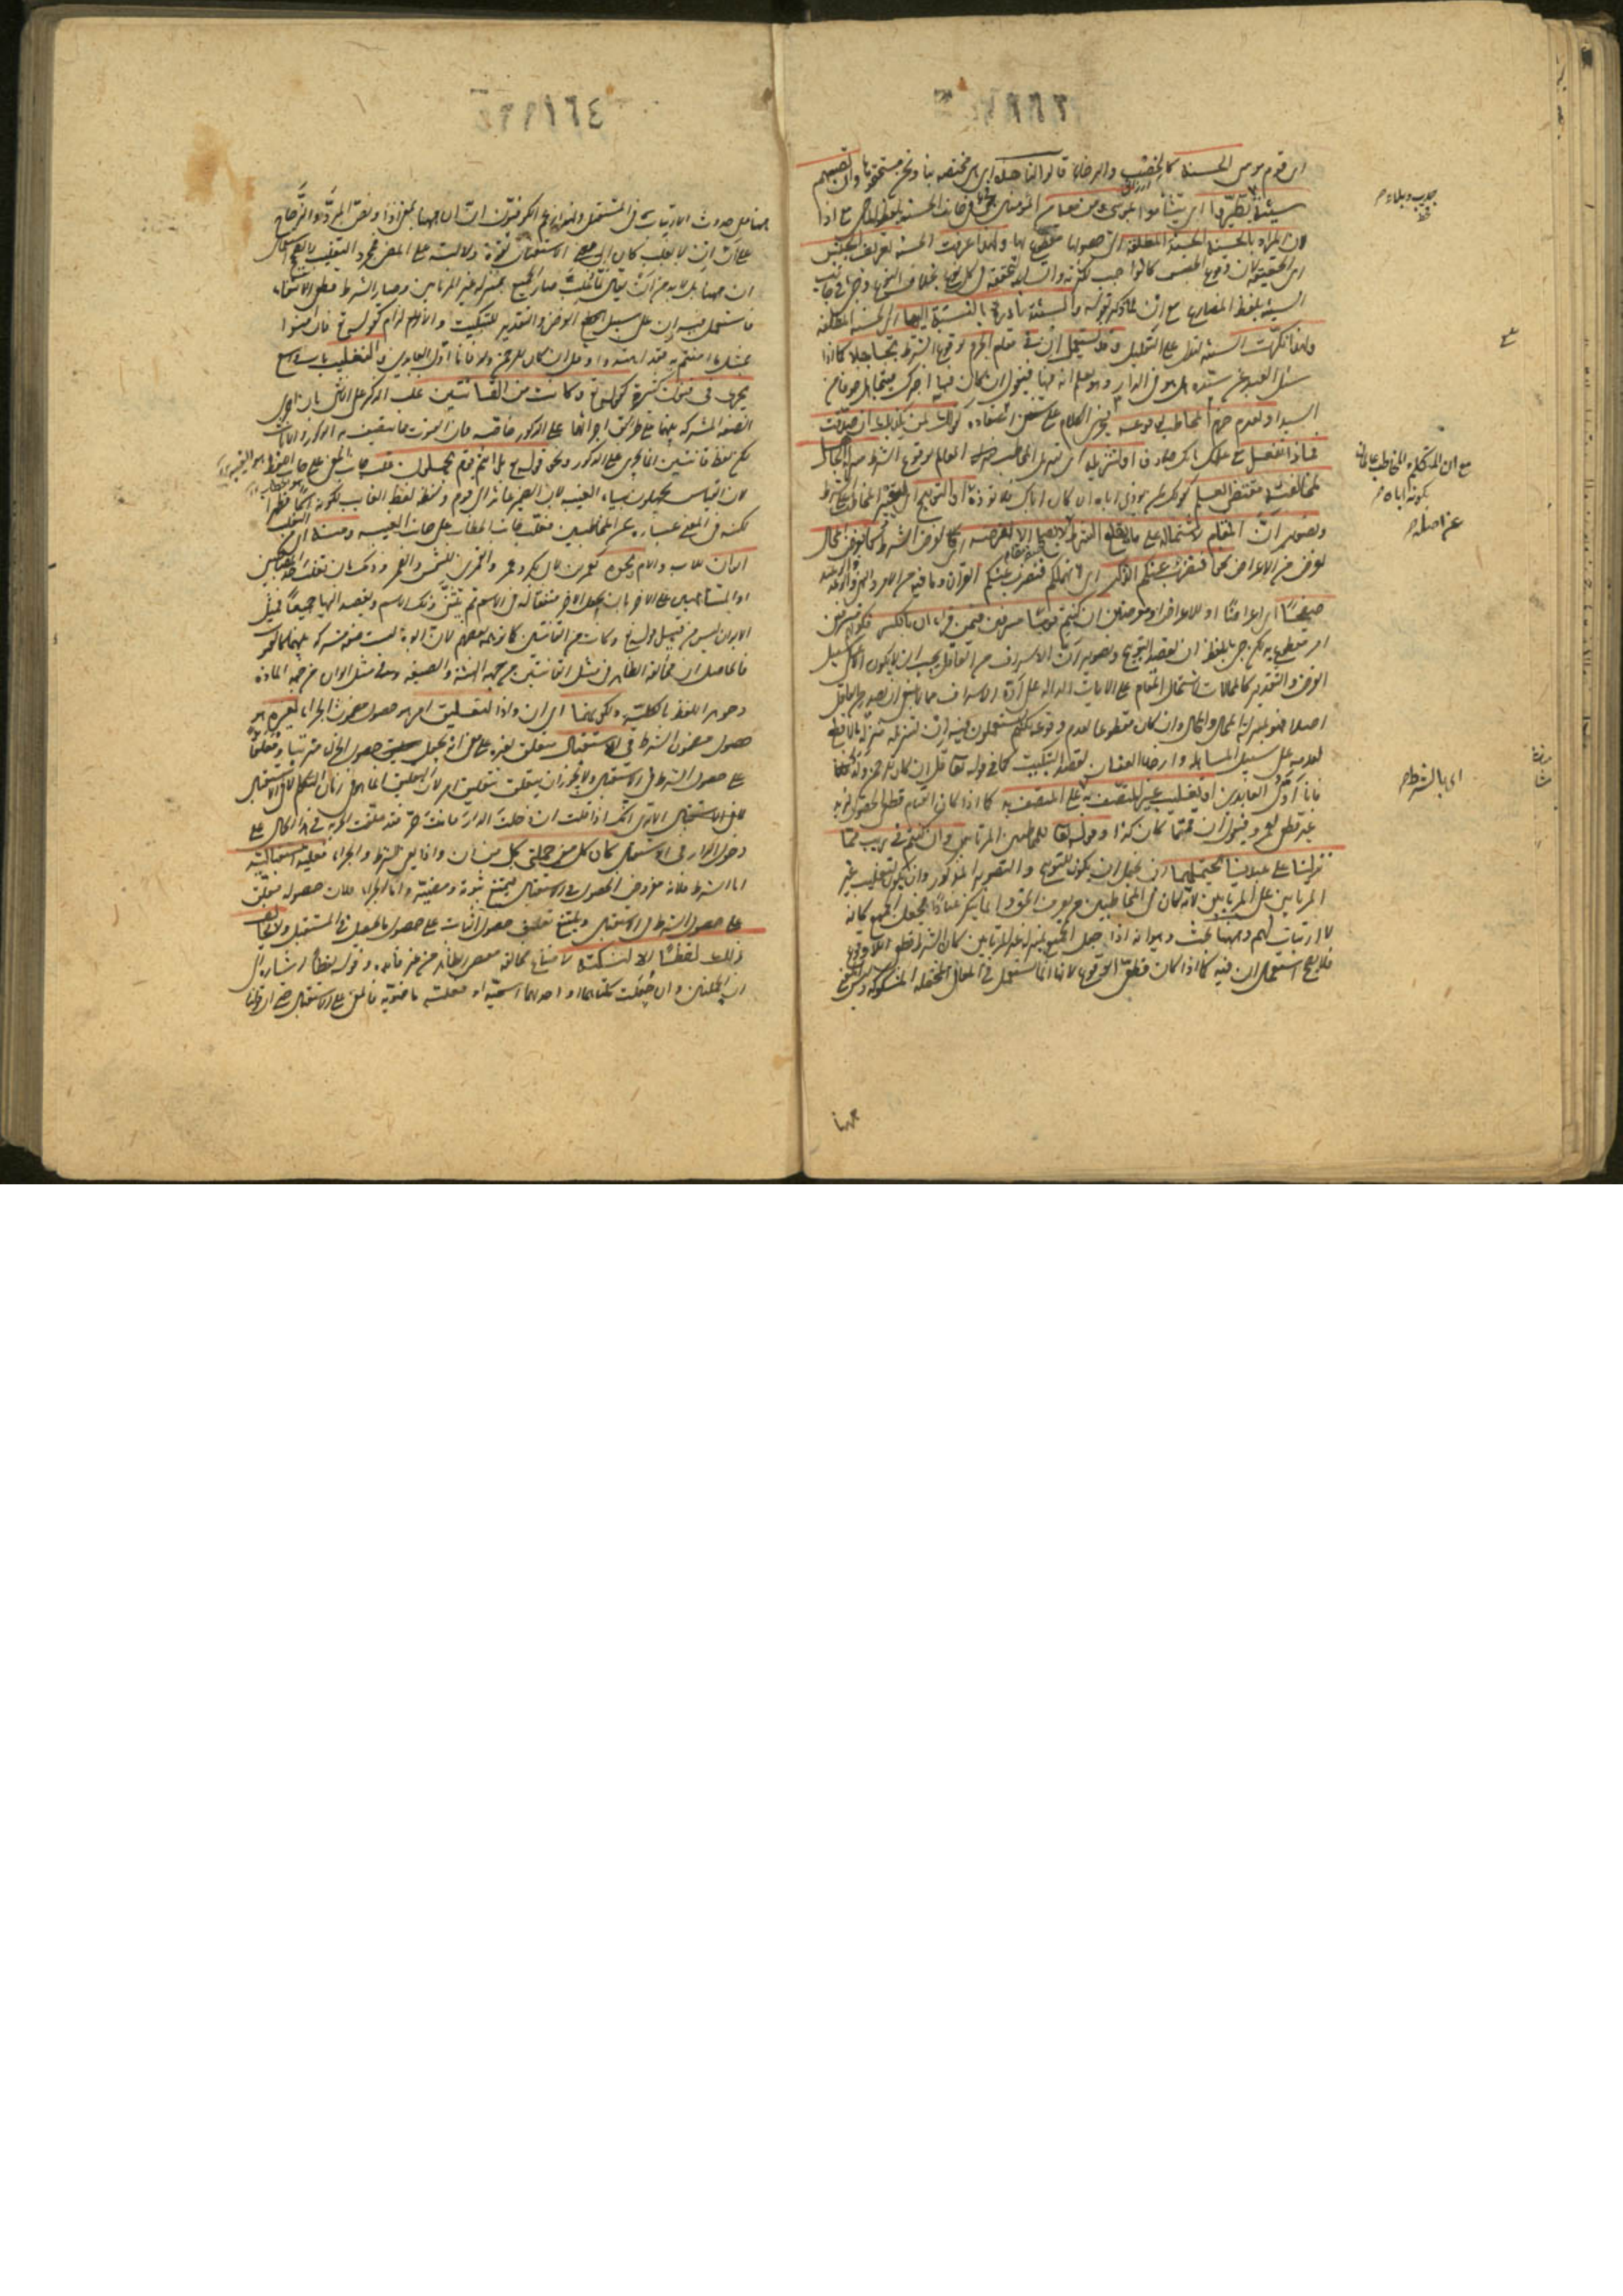 اى قوم موسى الحسنة كالخصب والرخاء قالوا لنا هذه اى هى مختصة بنا ونحن مستحقوها وان تصبهم
سيئة يطيروا اى يتشأموا بموسى ومن معه من المؤمنين جئ فى جانب الحسنة بلفظ الماضى مع اذا
لان المراد بالحسنة الحسنة المطلقة التى حصولها مقطوع بها ولهذا عرفت الحسنة تعريف الجنس
اى الحقيقة لان وقوع الجنس كالواجب لكثرته واتساعه لتحققه فى كل نوع بخلاف النوع وجئ فى جانب
السيئة بلفظ المضارع مع ان لما ذكره بقوله والسيئة نادرة بالنسبة اليها اى الحسنة المطلقة
ولهذا نكرت السيئة ليدل على التقليل وقد تستعمل ان فى مقام الجزم بوقوع الشرط تجاهلا كما اذا
سئل العبد عن سيده هل هو فى الدار وهو يعلم انه فيها فيقول ان كان فيها اخبرك فيتجاهل خوفا من
السيد او لعدم جزم المخاطب بوقوعه فيجرى الكلام على سنن اعتقاده كقولك لمن يكذبك ان صدقت
فماذا تفعل مع علمك بانك صادق او لتنزيله اى تنزيل المخاطب العالم بوقوع الشرط منزلة الجاهل
لمخالفته مقتضى العلم كقولك لمن يوذى اباه ان كان اباك فلا توذه او التوبيخ اى لتعيير المخاطب على الشرط
وتصوير ان المقام لاشتماله على ما يقلع الشرط لا يصلح الا لفرضه اى لفرض الشرط كما يفرض المحال
لغرض من الاغراض نحو افنضرب عنكم الذكر اى انهملكم فنضرب عنكم القرآن وما فيه من الامر والنهى والوعد
صفحا اى اعراضا او للاعراض او معرضين ان كنتم قوما مسرفين فيمن قرأ ان بالكسر فكونهم مسرفين
امر مقطوع به لكن جئ بلفظ ان لقصد التوبيخ وتصوير ان الاسراف من العاقل يجب ان لا يكون الا على سبيل
الفرض والتقدير كالمحالات لاشتمال المقام على الايات الدالة على ان الاسراف مما لا ينبغى ان يصدر عن العاقل
اصلا فهو بمنزلة المحال والمحال وان كان مقطوعا بعدم وقوعه لكنهم يستعملون فيه ان لتنزيله منزلة ما لا قطع
بعدمه على سبيل المساهلة وارخاء العنان لقصد التبكيت كما فى قوله تعالى قل ان كان للرحمن ولد
فانا اول العابدين او تغليب غير المتصف به على المتصف به كما اذا كان القيام قطعى الحصول لزيد
غير قطعى لعمرو فيقول ان قمتما كان كذا وقوله تعالى للمخاطبين المرتابين وان كنتم فى ريب مما
نزلنا على عبدنا يحتملهما اى يحتمل ان يكون للتوبيخ والتصوير المذكور وان يكون لتغليب غير
المرتابين على المرتابين لانه كان فى المخاطبين من يعرف الحق وانما ينكر عنادا فجعل الجميع كانه
لا ارتياب لهم وههنا بحث وهو انه اذا جعل الجميع بمنزلة غير المرتابين كان الشرط قطعى اللاوقوع
فلا يصح استعمال ان فيه كما اذا كان قطعى الوقوع لانها انما تستعمل فى المعانى المحتملة المشكوكة وليس المعنى
ههنا
جدب وبلاء
عن اصله
اى بالشرط
١٦٤
ههنا على حدوث الارتياب فى المستقبل ولهذا زعم الكوفيون ان ان ههنا بمعنى اذ ونص المبرد والزجاج
على ان ان لا تقلب كان الى معنى الاستقبال لقوة دلالته على المضى فمجرد التغليب لا يصحح استعمال
ان ههنا بل لا بد من ان يقال لما غلب صار الجميع بمنزلة غير المرتابين وصار الشرط قطعى الانتفاء
فاستعمل فيه ان على سبيل الفرض والتقدير للتبكيت والالزام كقوله تعالى فان امنوا
بمثل ما امنتم به فقد اهتدوا وقل ان كان للرحمن ولد فانا اول العابدين والتغليب باب واسع
يجرى فى فنون كثيرة كقوله تعالى وكانت من القانتين غلب الذكر على الانثى بان اجرى
الصفة المشتركة بينهما على طريقة اجرائها على الذكور خاصة فان القنوت مما يوصف به الذكور والاناث
لكن لفظ قانتين انما يجرى على الذكور ونحو قوله تعالى بل انتم قوم تجهلون غلب جانب المعنى على جانب اللفظ
لان القياس يجهلون بياء الغيبة لان الضمير عائد الى قوم ولفظه لفظ الغايب لكونه اسما مظهرا
لكنه فى المعنى عبارة عن المخاطبين فغلب جانب الخطاب على جانب الغيبة ومنه اى من التغليب
ابوان للاب والام ونحوه كعمرين لابى بكر وعمر والقمرين للشمس والقمر وذلك بان تغلب احد المتصاحبين
او المتشابهين على الاخر بان يجعل الاخر متفقا له فى الاسم ثم يثنى ذلك الاسم ويقصد اليهما جميعا فمثل
ابوان ليس من قبيل قوله تعالى وكانت من القانتين كما توهمه بعضهم لان الابوة ليست صفة مشتركة بينهما كالقنوت
فالحاصل ان مخالفة الظاهر فى مثل القانتين من جهة الهيئة والصيغة وفى مثل ابوان من جهة المادة
وجوهر اللفظ بالكلية ولكونهما اى ان واذا لتعليق امر هو حصول مضمون الجزاء بغيره هو
حصول مضمون الشرط فى الاستقبال متعلق بغيره على معنى انه يجعل حصول الجزاء مترتبا ومعلقا
على حصول الشرط فى الاستقبال ولا يجوز ان يتعلق بتعليق امر لان التعليق انما هو فى زمان التكلم لا فى الاستقبال
الا ترى انك اذا قلت ان دخلت الدار فانت حر فقد علقت الحرية فى الحال على
دخول الدار فى الاستقبال كان كل من جملتى كل من ان واذا يعنى الشرط والجزاء فعلية استقبالية
اما الشرط فلانه مفروض الحصول فى الاستقبال فيمتنع ثبوته ومضيه واما الجزاء فلان حصوله معلق
على حصول الشرط فى الاستقبال ويمتنع تعليق حصول الثابت على حصول ما يحصل فى المستقبل ولا يخالف
ذلك لفظا الا لنكتة لامتناع مخالفة مقتضى الظاهر من غير فائدة وقوله لفظا اشارة الى
ان الجملتين وان جعلت كلتاهما او احدهما اسمية او فعلية ماضوية فالمعنى على الاستقبال حتى ان قولنا